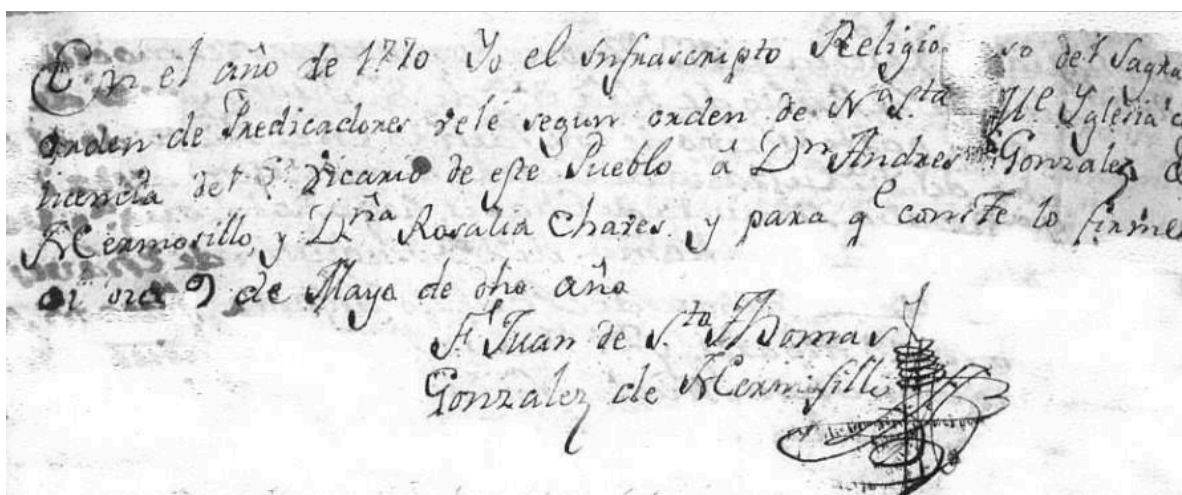 En el año de 1770 Yo el Infrascripto Religioso del Sagra
orden de Predicadores velé segun orden de Nª Sta Me Yglesia
licencia del Sr Vicario de este Pueblo a Dn Andres Gonzalez
Hermosillo, y Dña Rosalia Chaves y para qe conste lo firmé
oi dia 9 de Mayo de dho año
Fr Juan de Sto Thomas
Gonzalez de Hermosillo